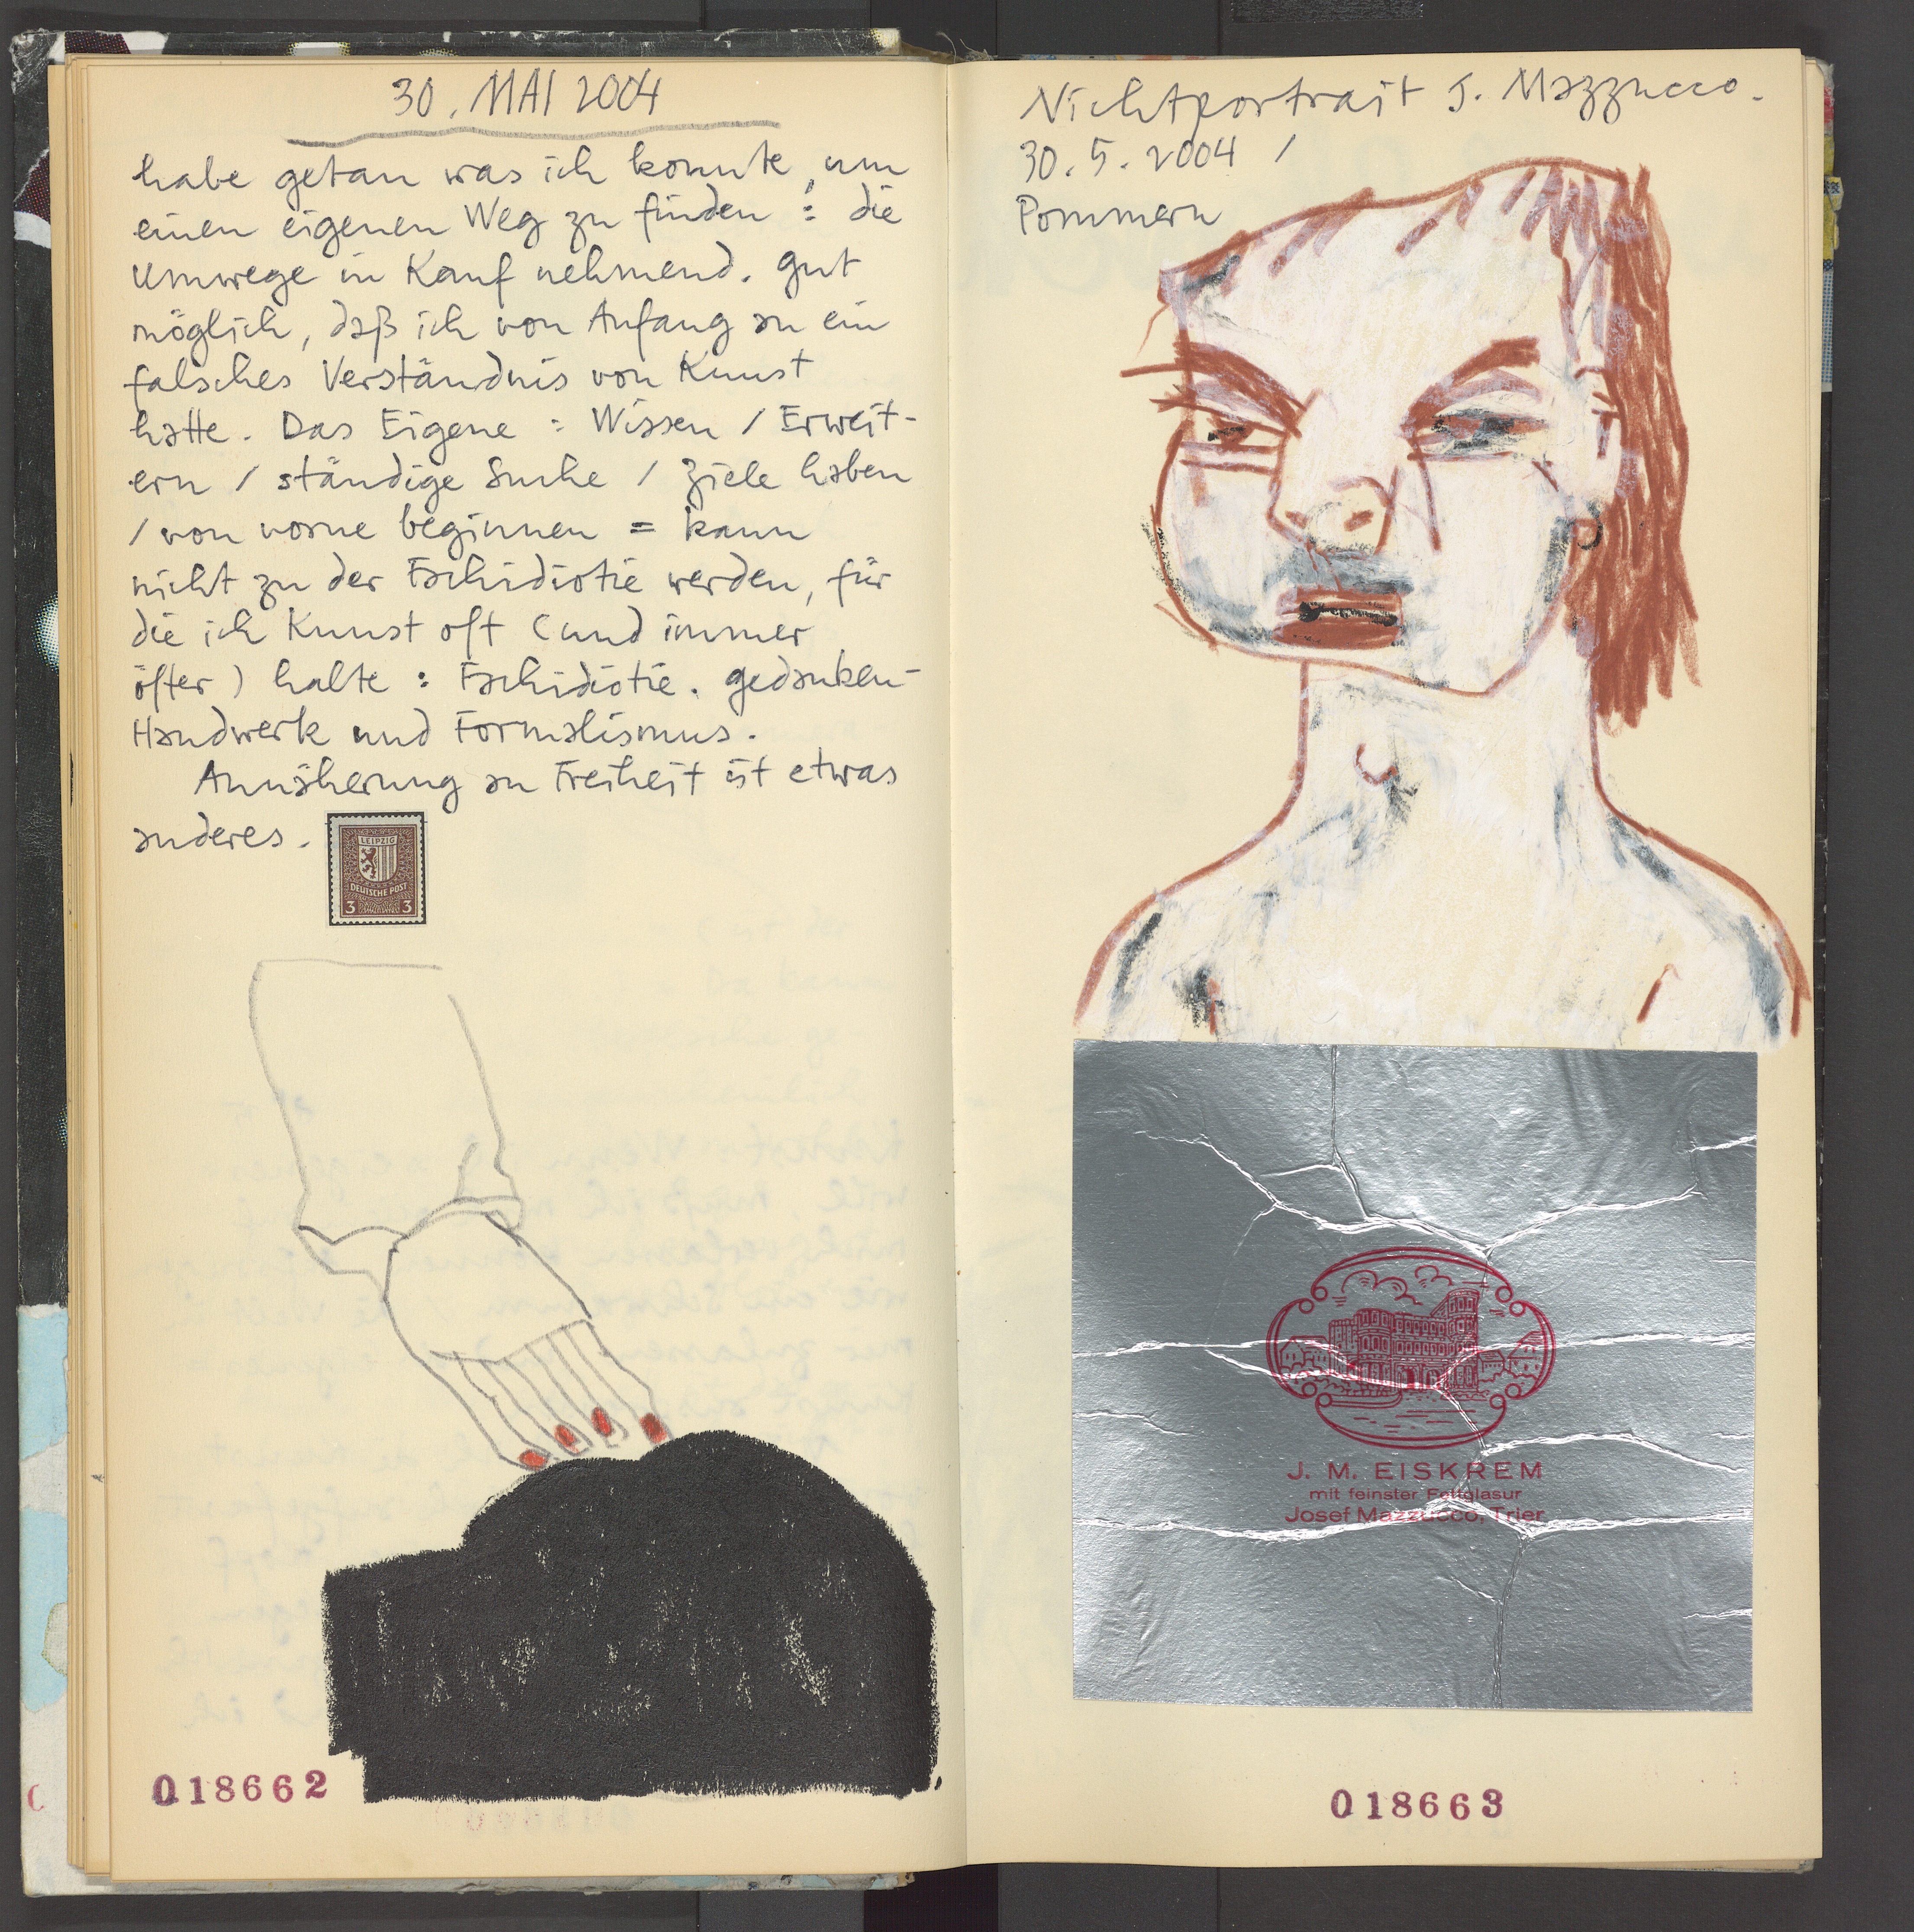 30. MAI 2004
habe getan was ich konnte, um
einen eigenen Weg zu finden : die
Umwege in Kauf nehmend. gut
möglich, daß ich von Anfang an ein
falsches Verständnis von Kunst
hatte. Das Eigene : Wissen / Erweit-
ern / ständige Suche / Ziele haben
/ von vorne beginnen = kann
nicht zu der Fachidiotie werden, für
die ich Kunst oft (und immer
öfter) halte : Fachidiotie. gedanken-
Handwerk und Formalismus.
Annäherung an Freiheit ist etwas
anderes.
LEIPZIG
DEUTSCHE POST
3 3
018662
Nichtportrait J. Mazzucco.
30.5.2004 /
Pommern
J. M. EISKREM
mit feinster Fettglasur
Josef Mazzucco, Trier
018663